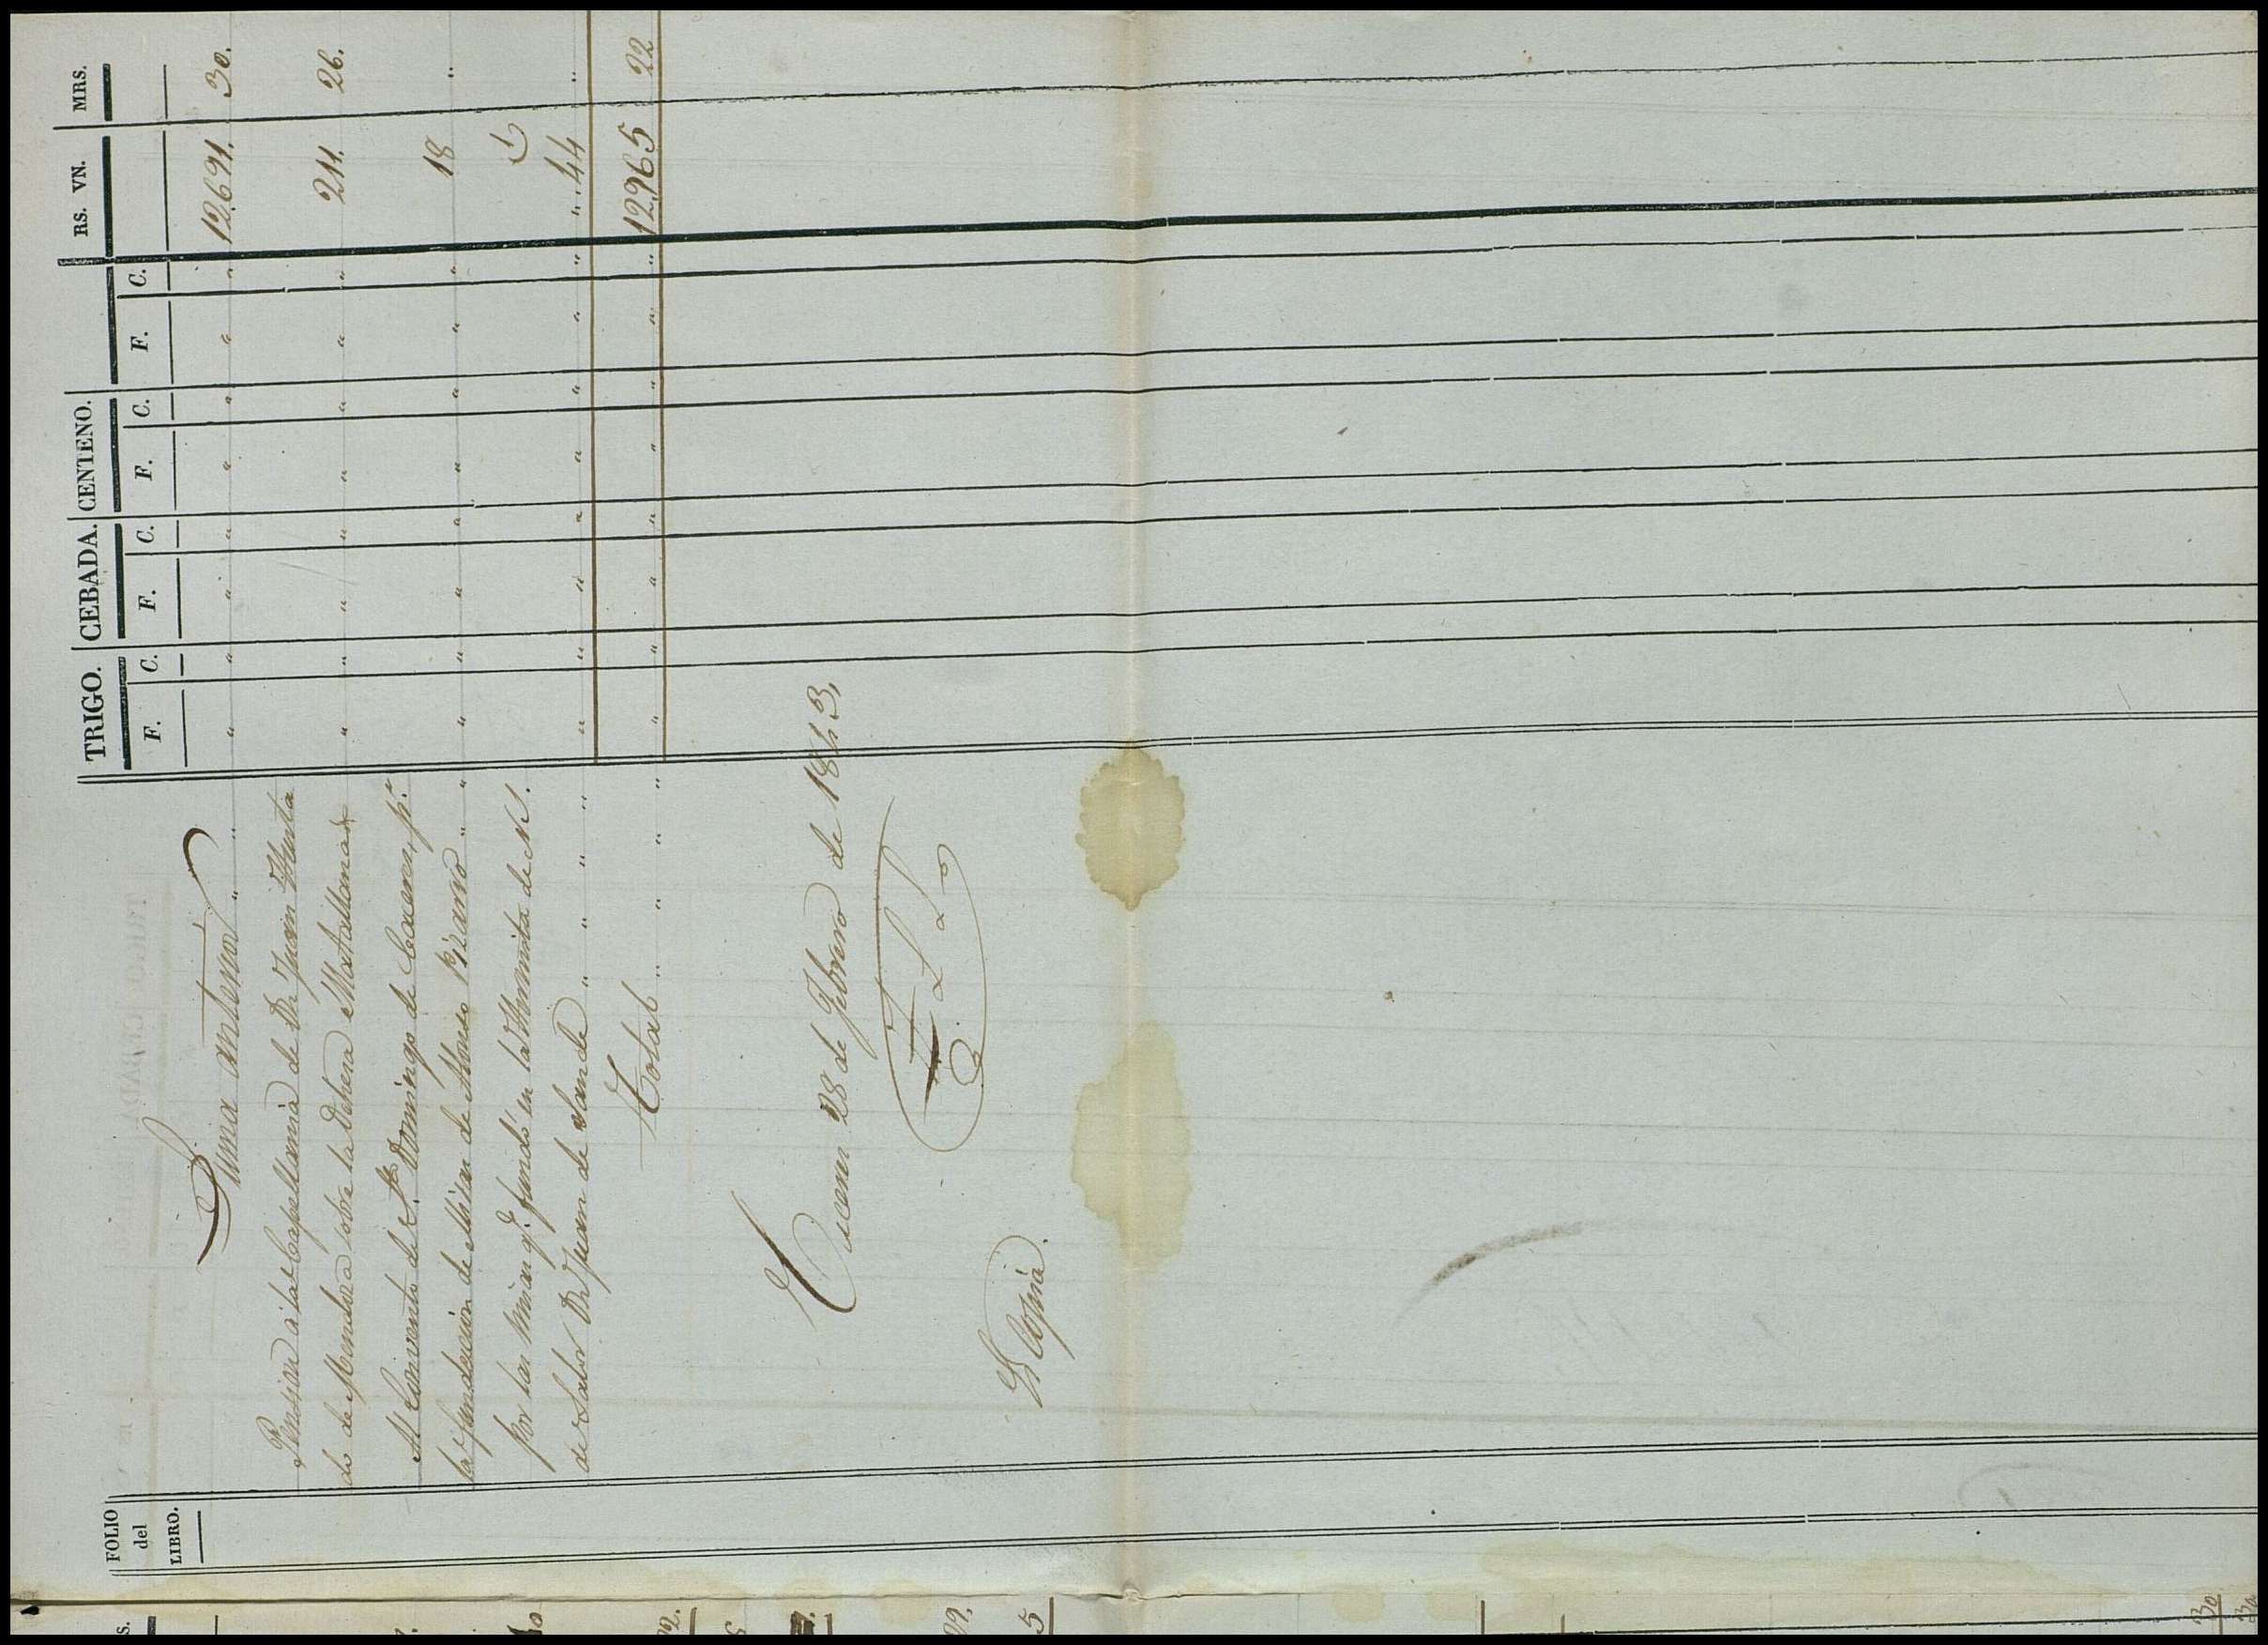 FOLIO
del
LIBRO.
TRIGO. CEBADA. CENTENO. RS. VN. MRS.
F. C. F. C. F. C. F. C.
Suma anterior 12.691. 30.
Pension á la Capellania de Dn. Juan
do de Mendoza sobre la Dehesa Matallana 211. 26.
Al Convento de Sto. Domingo de Caceres pr.
la fundacion de Misas de Alonso Pizarro 18 "
por las Misas q. fundó en la Hermita de N. S.
de Salor Dn. Juan de Sande 44 "
Total 12.965 22
Caceres 28 de Febrero de 1843,
Es Copia.